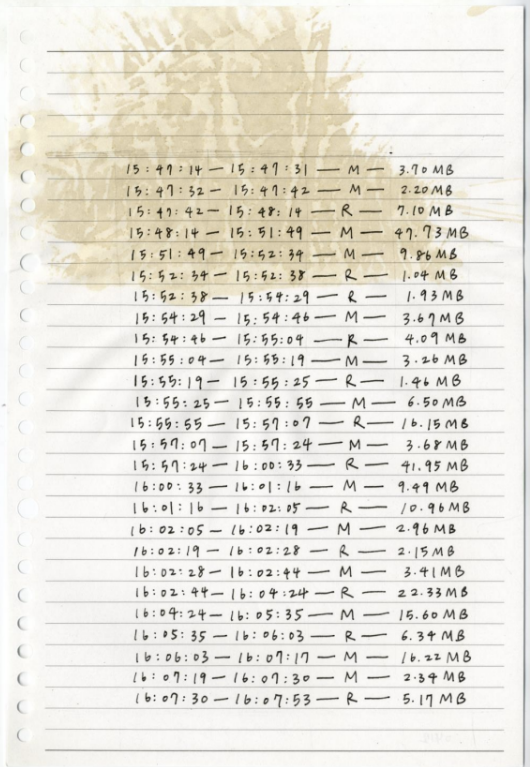 15:47:14 — 15:47:31 — M — 3.70 MB
15:47:32 — 15:47:42 — M — 2.20 MB
15:47:42 — 15:48:14 — R — 7.10 MB
15:48:14 — 15:51:49 — M — 47.73 MB
15:51:49 — 15:52:34 — M — 9.86 MB
15:52:34 — 15:52:38 — R — 1.04 MB
15:52:38 — 15:54:29 — R — 1.93 MB
15:54:29 — 15:54:46 — M — 3.67 MB
15:54:46 — 15:55:04 — R — 4.09 MB
15:55:04 — 15:55:19 — M — 3.26 MB
15:55:19 — 15:55:25 — R — 1.46 MB
15:55:25 — 15:55:55 — M — 6.50 MB
15:55:55 — 15:57:07 — R — 16.15 MB
15:57:07 — 15:57:24 — M — 3.68 MB
15:57:24 — 16:00:33 — R — 41.95 MB
16:00:33 — 16:01:16 — M — 9.49 MB
16:01:16 — 16:02:05 — R — 10.96 MB
16:02:05 — 16:02:19 — M — 2.96 MB
16:02:19 — 16:02:28 — R — 2.15 MB
16:02:28 — 16:02:44 — M — 3.41 MB
16:02:44 — 16:04:24 — R — 22.33 MB
16:04:24 — 16:05:35 — M — 15.60 MB
16:05:35 — 16:06:03 — R — 6.34 MB
16:06:03 — 16:07:17 — M — 16.22 MB
16:07:19 — 16:07:30 — M — 2.34 MB
16:07:30 — 16:07:53 — R — 5.17 MB